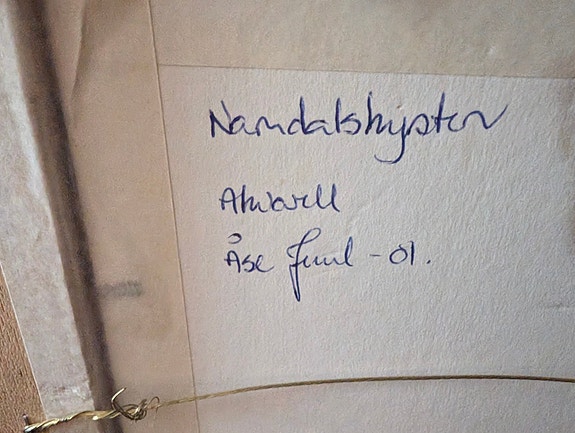 Namdalskysten
Akvarell
Åse Juul - 01.